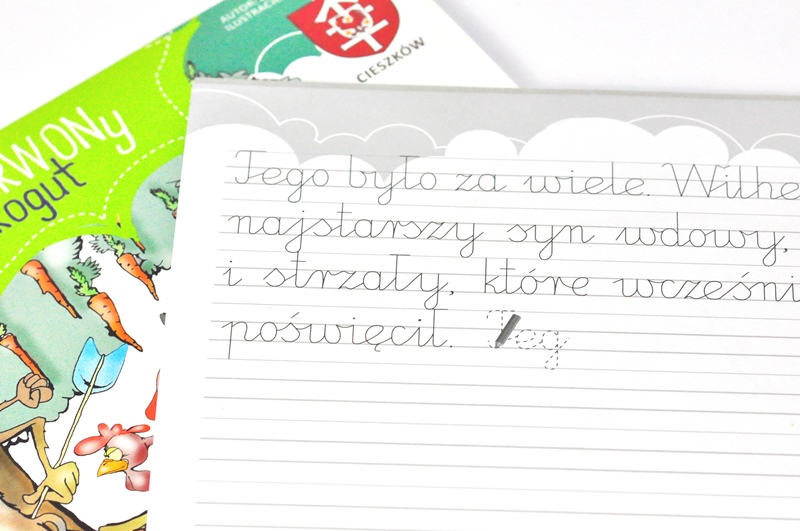 AUTOR
CIESZKÓW
RWONy
kogut
Tego było za wiele. Wilhe
najstarszy syn wdowy,
i strzały, które wcześni
poświęcił. Teg